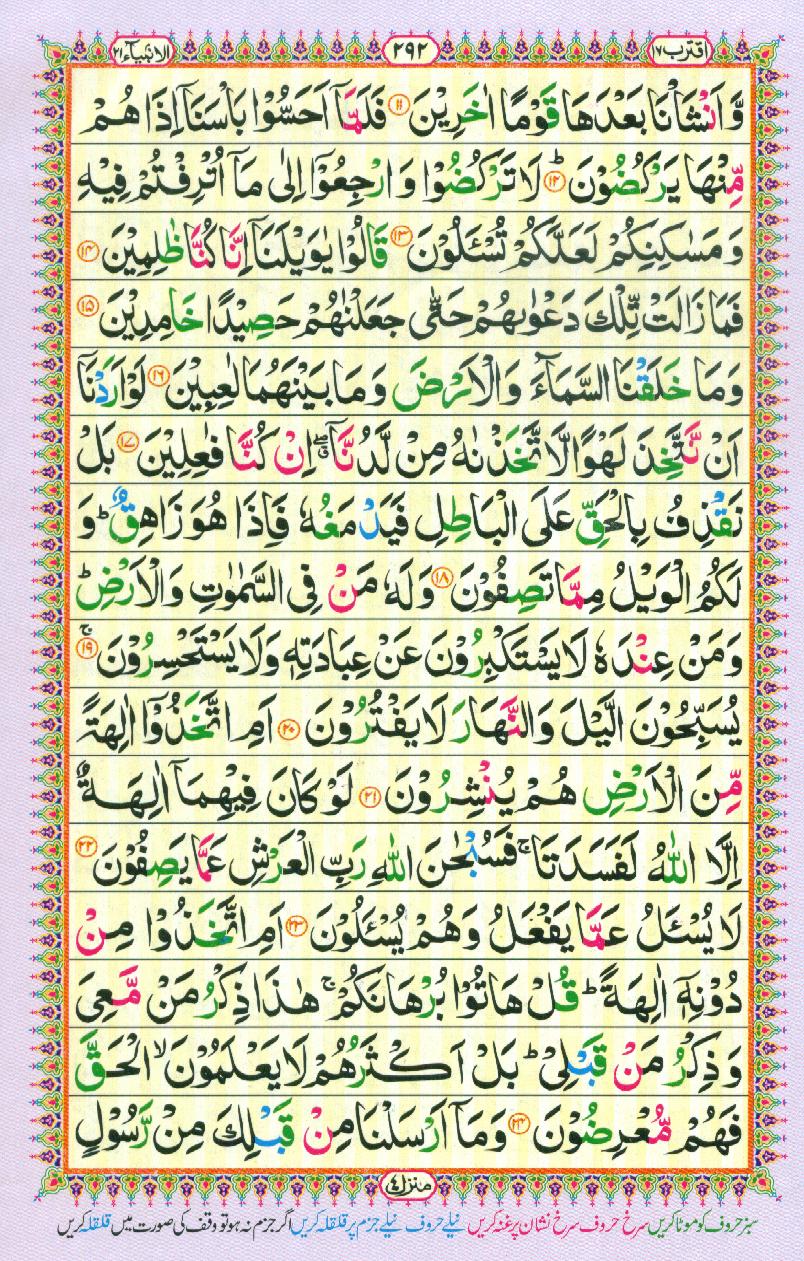 اقترب ١٧
٢٩٢
الانبیآء ٢١
وَّ اَنْشَاْنَا بَعْدَهَا قَوْمًا اٰخَرِیْنَ ﴿۱۱﴾ فَلَمَّاۤ اَحَسُّوْا بَاْسَنَاۤ اِذَا هُمْ
مِّنْهَا یَرْكُضُوْنَ ؕ﴿۱۲﴾ لَا تَرْكُضُوْا وَ ارْجِعُوْۤا اِلٰی مَاۤ اُتْرِفْتُمْ فِیْهِ
وَ مَسٰكِنِكُمْ لَعَلَّكُمْ تُسْـَٔلُوْنَ ﴿۱۳﴾ قَالُوْا یٰوَیْلَنَاۤ اِنَّا كُنَّا ظٰلِمِیْنَ ﴿۱۴﴾
فَمَا زَالَتْ تِّلْكَ دَعْوٰىهُمْ حَتّٰی جَعَلْنٰهُمْ حَصِیْدًا خٰمِدِیْنَ ﴿۱۵﴾
وَ مَا خَلَقْنَا السَّمَآءَ وَ الْاَرْضَ وَ مَا بَیْنَهُمَا لٰعِبِیْنَ ﴿۱۶﴾ لَوْ اَرَدْنَاۤ
اَنْ نَّتَّخِذَ لَهْوًا لَّا تَّخَذْنٰهُ مِنْ لَّدُنَّاۤ ۖۗ اِنْ كُنَّا فٰعِلِیْنَ ﴿۱۷﴾ بَلْ
نَقْذِفُ بِالْحَقِّ عَلَی الْبَاطِلِ فَیَدْمَغُهٗ فَاِذَا هُوَ زَاهِقٌ ؕ وَ
لَكُمُ الْوَیْلُ مِمَّا تَصِفُوْنَ ﴿۱۸﴾ وَ لَهٗ مَنْ فِی السَّمٰوٰتِ وَ الْاَرْضِ ؕ
وَ مَنْ عِنْدَهٗ لَا یَسْتَكْبِرُوْنَ عَنْ عِبَادَتِهٖ وَ لَا یَسْتَحْسِرُوْنَ ۚ﴿۱۹﴾
یُسَبِّحُوْنَ الَّیْلَ وَ النَّهَارَ لَا یَفْتُرُوْنَ ﴿۲۰﴾ اَمِ اتَّخَذُوْۤا اٰلِهَةً
مِّنَ الْاَرْضِ هُمْ یُنْشِرُوْنَ ﴿۲۱﴾ لَوْ كَانَ فِیْهِمَاۤ اٰلِهَةٌ
اِلَّا اللّٰهُ لَفَسَدَتَا ۚ فَسُبْحٰنَ اللّٰهِ رَبِّ الْعَرْشِ عَمَّا یَصِفُوْنَ ﴿۲۲﴾
لَا یُسْـَٔلُ عَمَّا یَفْعَلُ وَ هُمْ یُسْـَٔلُوْنَ ﴿۲۳﴾ اَمِ اتَّخَذُوْا مِنْ
دُوْنِهٖۤ اٰلِهَةً ؕ قُلْ هَاتُوْا بُرْهَانَكُمْ ۚ هٰذَا ذِكْرُ مَنْ مَّعِیَ
وَ ذِكْرُ مَنْ قَبْلِیْ ؕ بَلْ اَكْثَرُهُمْ لَا یَعْلَمُوْنَ ۙ الْحَقَّ
فَهُمْ مُّعْرِضُوْنَ ﴿۲۴﴾ وَ مَاۤ اَرْسَلْنَا مِنْ قَبْلِكَ مِنْ رَّسُوْلٍ
منزل ٤
سبز حروف کو موٹا کریں سرخ حروف سرخ نشان پر غنہ کریں نیلے حروف نیلے جزم پر قلقلہ کریں اگر جزم نہ ہو تو وقف کی صورت میں قلقلہ کریں